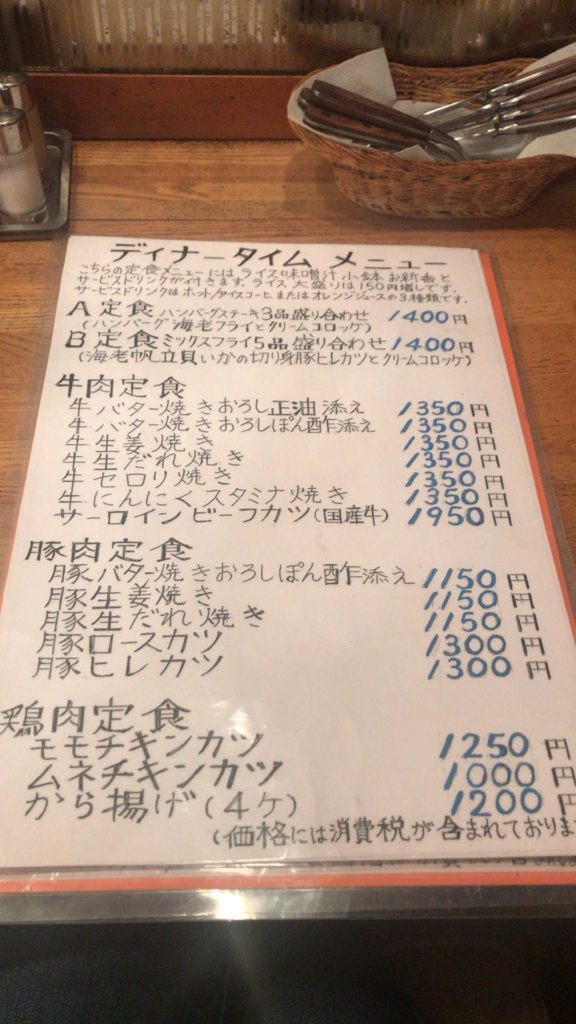 ディナータイム メニュー
こちらの定食メニューには ライス味噌汁 小鉢 お新香と
サービスドリンクが付きます。ライス 大盛りは150円増しです。
サービスドリンクは ホット/アイスコーヒ または オレンジジュースの3種類です。
A 定食 ハンバーグステーキ3品盛り合わせ 1400円
(ハンバーグ 海老フライとクリームコロッケ)
B 定食 ミックスフライ5品盛り合わせ 1400円
(海老帆立貝いかの切り身豚ヒレカツとクリームコロッケ)
牛肉定食
牛バター焼きおろし正油添え 1350円
牛バター焼きおろしぽん酢添え 1350円
牛生姜焼き 1350円
牛生だれ焼き 1350円
牛セロリ焼き 1350円
牛にんにくスタミナ焼き 1350円
サーロインビーフカツ(国産牛) 1950円
豚肉定食
豚バター焼きおろしぽん酢添え 1150円
豚生姜焼き 1150円
豚生だれ焼き 1150円
豚ロースカツ 1300円
豚ヒレカツ 1300円
鶏肉定食
モモチキンカツ 1250円
ムネチキンカツ 1000円
から揚げ(4ケ) 1200円
(価格には消費税が含まれておりま